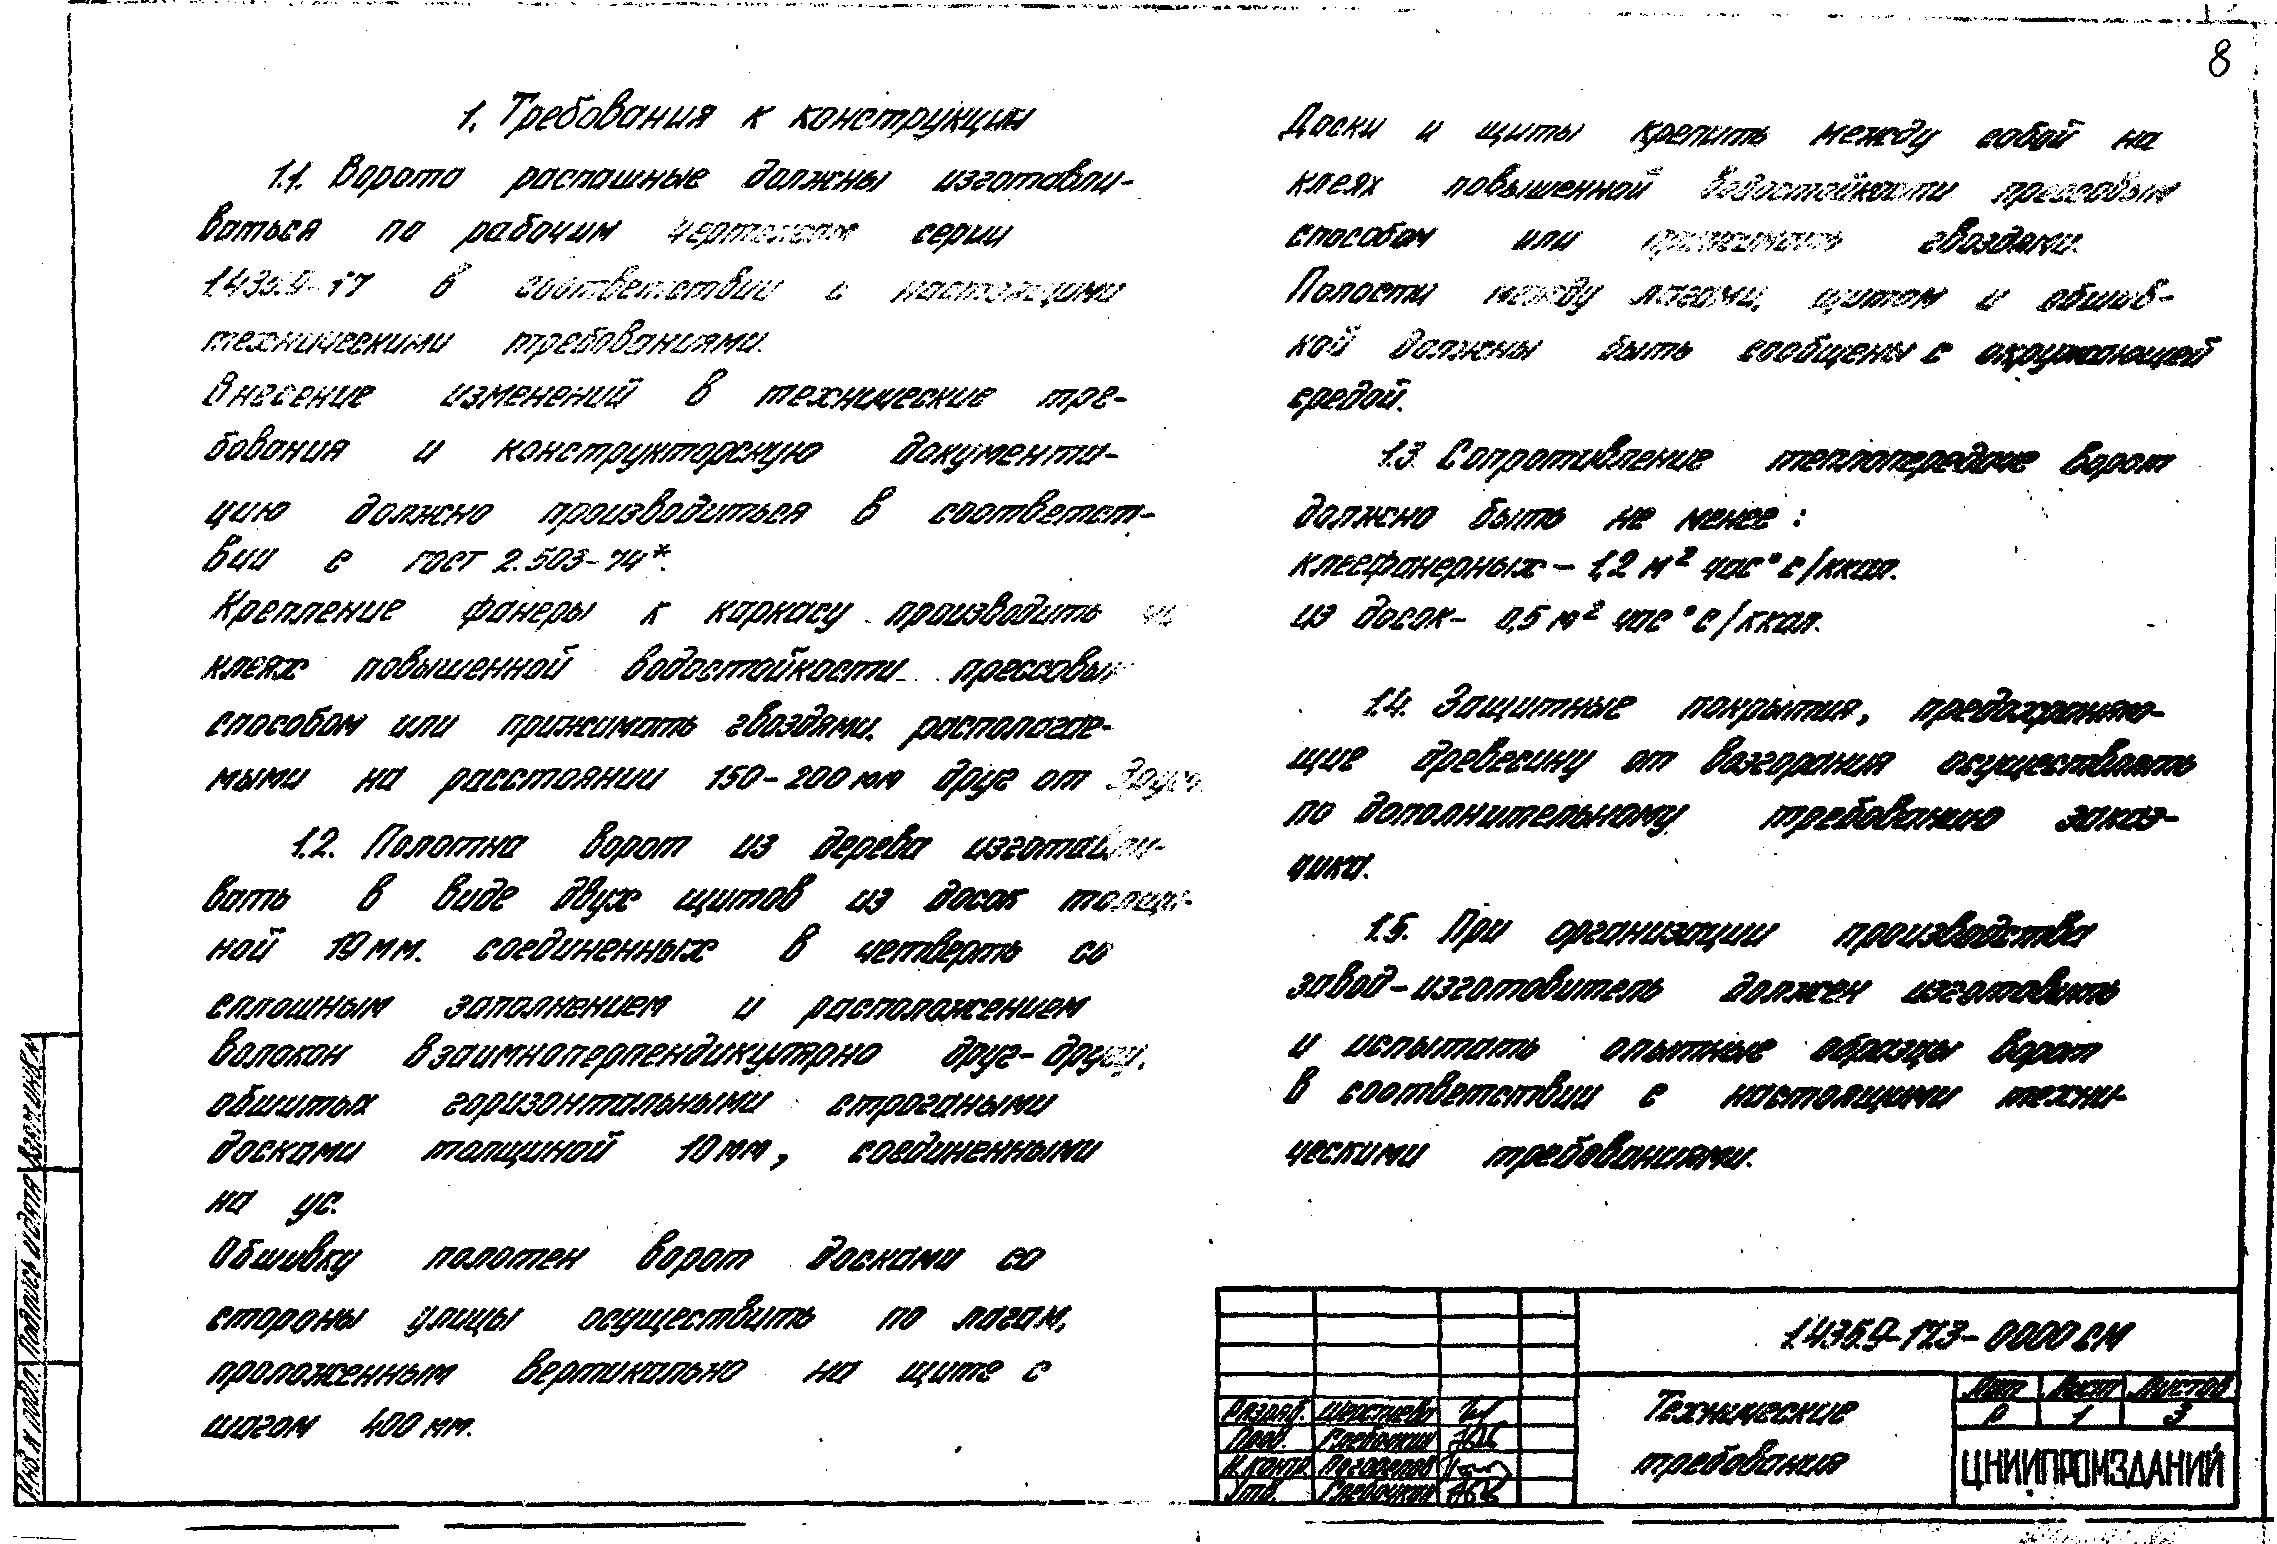 8
1. Требования к конструкции
1.1. Ворота распашные должны изготавли-
ваться по рабочим чертежам серии
1.435.9-17 в соответствии с настоящими
техническими требованиями.
Внесение изменений в технические тре-
бования и конструкторскую документа-
цию должно производиться в соответст-
вии с ГОСТ 2.503-74*.
Крепление фанеры к каркасу производить на
клеях повышенной водостойкости прессовым
способом или прижимать гвоздями, располагае-
мыми на расстоянии 150-200 мм друг от друга.
1.2. Полотна ворот из дерева изготавли-
вать в виде двух щитов из досок толщи-
ной 19 мм. соединенных в четверть со
сплошным заполнением и расположением
волокон взаимноперпендикулярно друг-другу,
обшитых горизонтальными строгаными
досками толщиной 19 мм, соединенными
на ус.
Обшивку полотен ворот досками со
стороны улицы осуществить по лагам,
проложенным вертикально на щите с
шагом 400 мм.
Доски и щиты крепить между собой на
клеях повышенной водостойкости прессовым
способом или прижимать гвоздями.
Полости между лагами, щитом и обшив-
кой должны быть сообщены с окружающей
средой.
1.3. Сопротивление теплопередаче ворот
должно быть не менее:
клеефанерных - 1,2 м² час °С/ккал.
из досок - 0,5 м² час °С/ккал.
1.4. Защитные покрытия, предохраняю-
щие древесину от возгорания осуществлять
по дополнительному требованию заказ-
чика.
1.5. При организации производства
завод-изготовитель должен изготовить
и испытать опытные образцы ворот
в соответствии с настоящими техни-
ческими требованиями.
1.435.9-17.3-0000 СМ
Технические
требования
Лит Лист Листов
Р 1 3
ЦНИИПРОМЗДАНИЙ
Разраб. Шерстнева
Пров. Слебочкин
Н.контр.
Утв. Слебочкин
Инв. N подл. Подпись и дата Взам. инв. N